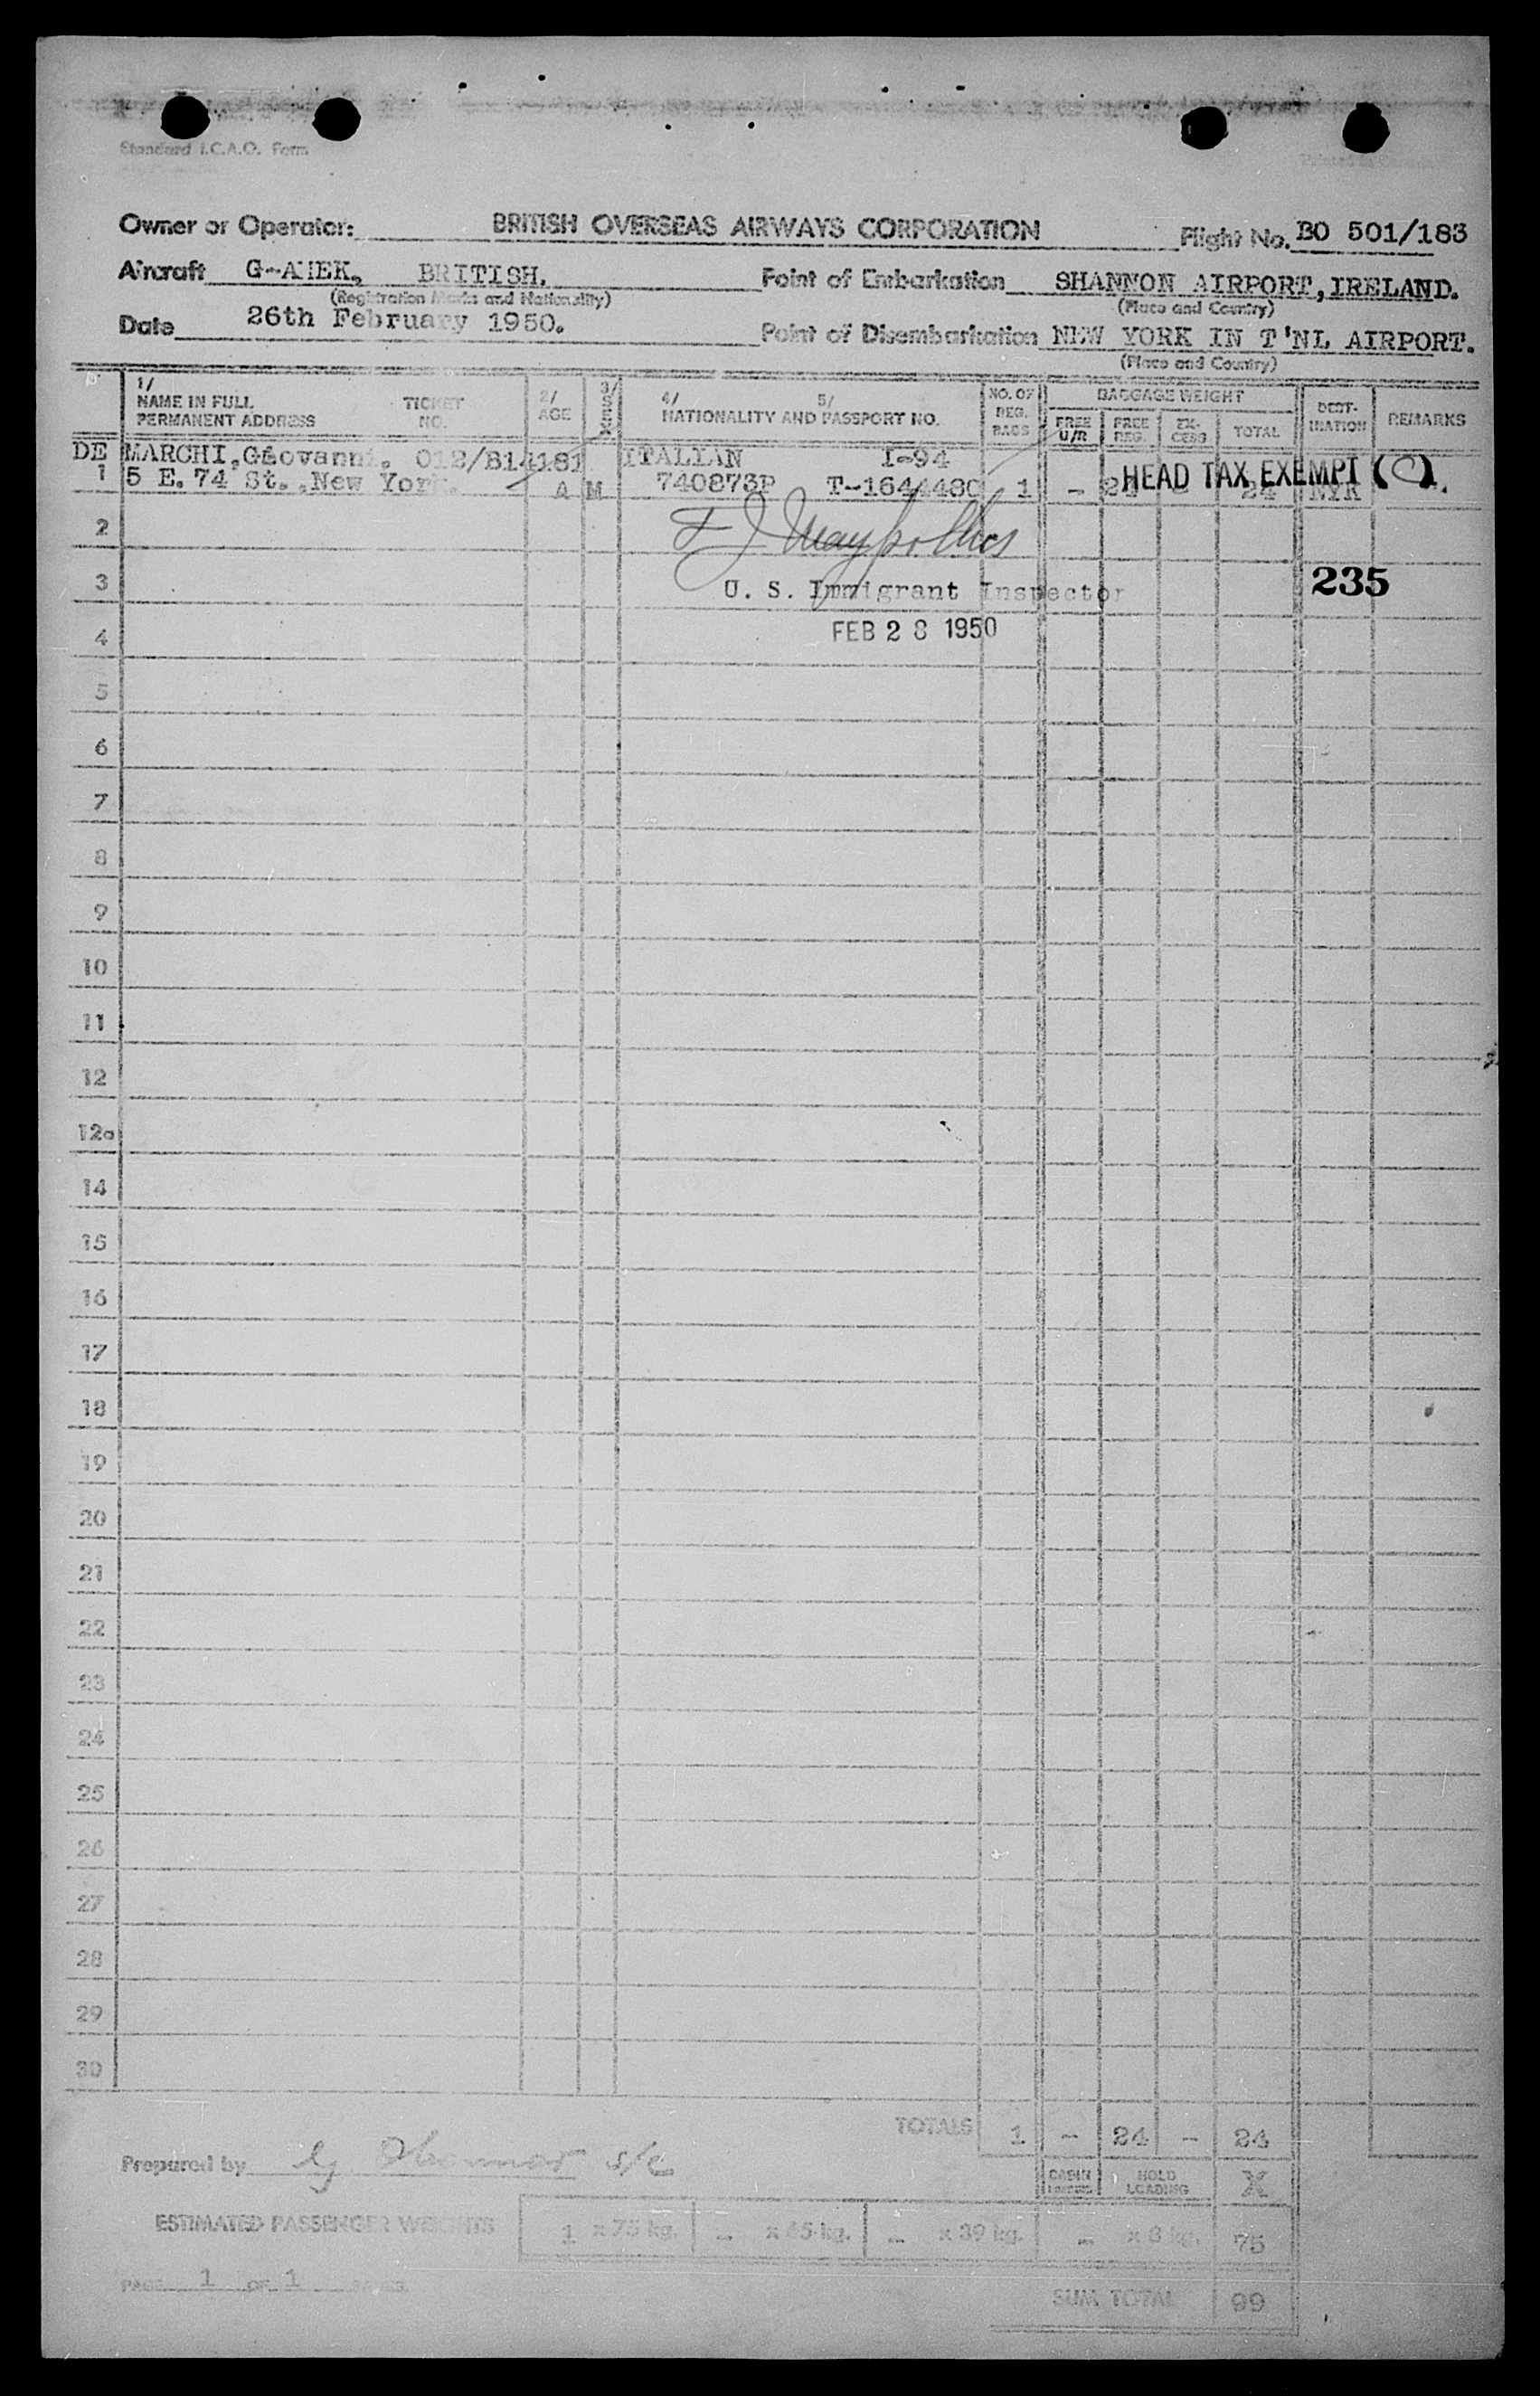 Standard I.C.A.O. Form
Owner or Operator: BRITISH OVERSEAS AIRWAYS CORPORATION Flight No. BO 501/183
Aircraft BRITISH. Point of Embarkation SHANNON AIRPORT, IRELAND.
(Registration Marks and Nationality) (Place and Country)
Date 26th February 1950. Point of Disembarkation NEW YORK IN T'NL AIRPORT.
(Place and Country)
1/ NAME IN FULL PERMANENT ADDRESS TICKET NO. 2/ AGE 3/ SEX 4/ 5/ NATIONALITY AND PASSPORT NO. NO. OF REG. BAGS BAGGAGE WEIGHT FREE U/R FREE REG. EX-CESS TOTAL DEST-INATION REMARKS
DE MARCHI, Giovanni. 012/B14181 ITALIAN I-94
1 5 E. 74 St., New York. A M 740873P 1 - 24 - 24 NYK
HEAD TAX EXEMPT
2
3 U. S. Immigrant Inspector 235
4 FEB 28 1950
5
6
7
8
9
10
11
12
12a
14
15
16
17
18
19
20
21
22
23
24
25
26
27
28
29
30
TOTALS 1 - 24 - 24
Prepared by
CABIN LOADING HOLD LOADING X
ESTIMATED PASSENGER WEIGHTS 1 x 75 kg. - x 65 kg. - x 39 kg. - x 8 kg. 75
PAGE 1 OF 1 PAGES
SUM TOTAL 99